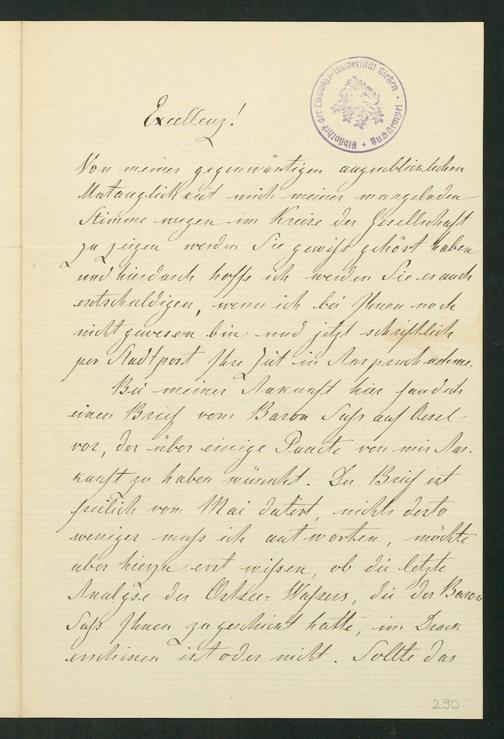 Bibliothek der Ludwigs-Universität Gießen
Excellenz!
Von meiner gegenwärtigen augenblicklichen
Untauglichkeit mich meiner mangelnden
Stimme wegen im Kreise der Gesellschaft
zu zeigen werden Sie gewiß gehört haben
und hierdurch hoffe ich werden Sie es auch
entschuldigen, wenn ich bei Ihnen noch
nicht gewesen bin und jetzt schriftlich
per Stadtpost Ihre Zeit in Anspruch nehme.
Bei meiner Ankunft hier fand ich
einen Brief vom Baron Saß auf Oesel
vor, der über einige Puncte von mir Aus-
kunft zu haben wünscht. Der Brief ist
freilich vom Mai datirt, nichts desto
weniger muß ich antworten, möchte
aber hierzu erst wissen, ob die letzte
Analyse des Ostsee-Wassers, die der Baron
Saß Ihnen zugeschickt hatte, im Druck
erschienen ist oder nicht. Sollte das
290